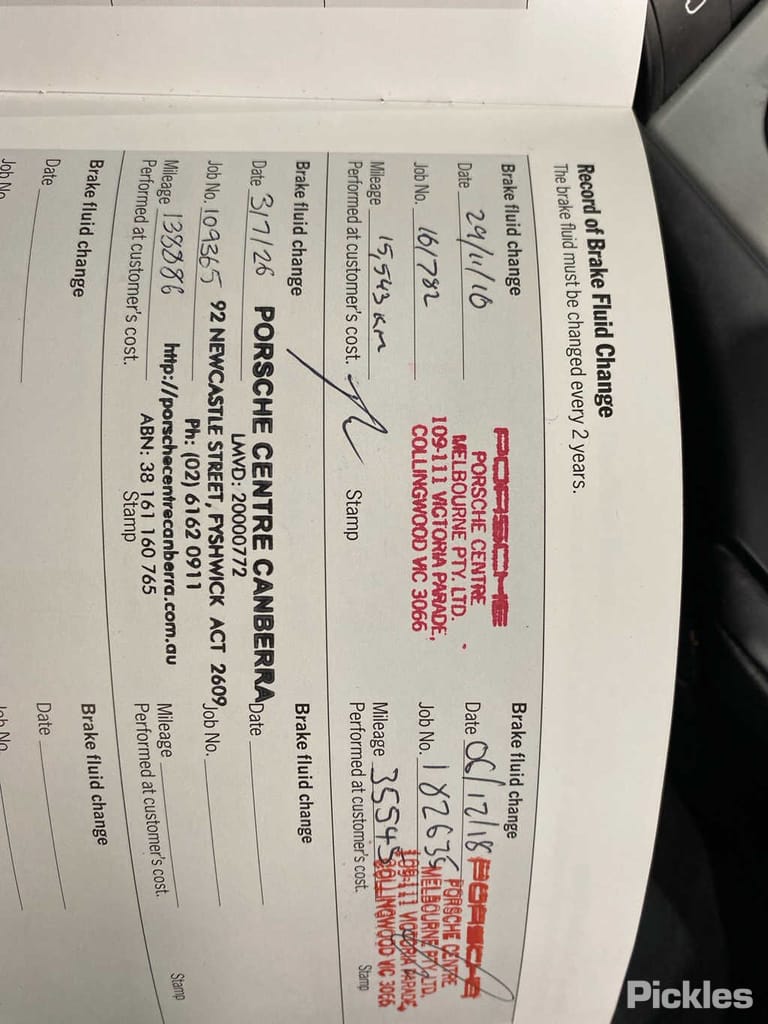 Record of Brake Fluid Change
The brake fluid must be changed every 2 years.
Brake fluid change
Date 29/11/16
Job No. 161782
Mileage 15,543 km
Performed at customer's cost.
Stamp
PORSCHE
PORSCHE CENTRE
MELBOURNE PTY. LTD.
109-111 VICTORIA PARADE,
COLLINGWOOD VIC 3066
Brake fluid change
Date 06/12/18
Job No. 182635
Mileage 35545
Performed at customer's cost.
Stamp
PORSCHE
PORSCHE CENTRE
MELBOURNE PTY. LTD.
109-111 VICTORIA PARADE,
COLLINGWOOD VIC 3066
Brake fluid change
Date 3/7/26
Job No. 109365
Mileage 138886
Performed at customer's cost.
PORSCHE CENTRE CANBERRA
LMVD: 20000772
92 NEWCASTLE STREET, FYSHWICK ACT 2609
Ph: (02) 6162 0911
http://porschecentrecanberra.com.au
ABN: 38 161 160 765
Stamp
Brake fluid change
Date
Job No.
Mileage
Performed at customer's cost.
Stamp
Brake fluid change
Date
Job No.
Brake fluid change
Date
Job No.
Pickles